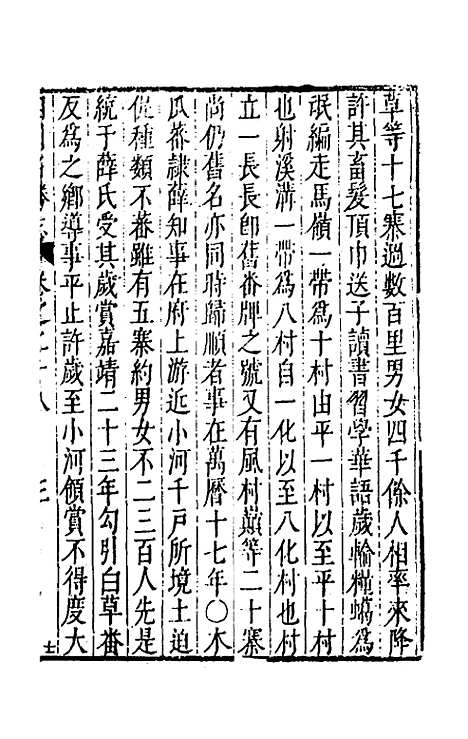 草等十七寨過數百里男女四千餘人相率來降
許其畜髮頂巾送子讀書習學華語歲輸糧蠲爲
氓編走馬嶺一帶爲十村由平一村以至平十村
也射溪溝一帶爲八村自一化以至八化村也村
立一長長卽舊番牌之號又有風村巔等二十寨
尚仍舊名亦同時歸順者事在萬曆十七年○木
瓜番隷薛知事在府上游近小河千戶所境土迫
促種類不蕃雖有五寨約男女不二三百人先是
統于薛氏受其歲賞嘉靖二十三年勾引白草番
反爲之鄉導事平止許歲至小河領賞不得度大